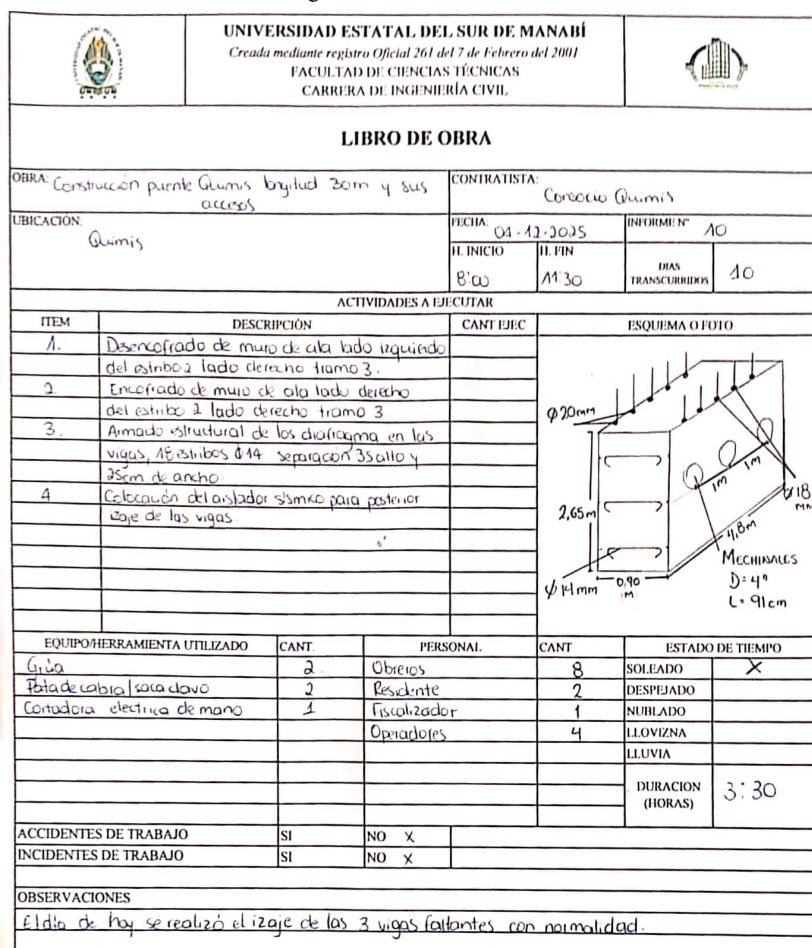 UNIVERSIDAD ESTATAL DEL SUR DE MANABÍ
Creada mediante registro Oficial 261 del 7 de Febrero del 2001
FACULTAD DE CIENCIAS TÉCNICAS
CARRERA DE INGENIERÍA CIVIL
UNESUM
LIBRO DE OBRA
OBRA: Construcción puente Quimis longitud 30m y sus
accesos
CONTRATISTA:
Consocio Quimis
UBICACIÓN:
Quimis
FECHA:
01-12-2025
INFORME Nº 10
H. INICIO
8:00
H. FIN
11:30
DIAS
TRANSCURRIDOS 10
ACTIVIDADES A EJECUTAR
ITEM DESCRIPCIÓN CANT EJEC ESQUEMA O FOTO
1. Desencofrado de muro de ala lado izquierdo
del estribo 2 lado derecho tramo 3.
2. Encofrado de muro de ala lado derecho
del estribo 2 lado derecho tramo 3
3. Armado estructural de los diafragma en las
vigas, 18 estribos φ14 separación 35 alto y
25cm de ancho
4 Colocación del aislador sísmico para posterior
izaje de las vigas
φ20mm
2,65m
φ14mm
0,90
M
1M
1M
4,8m
φ18
MM
MECHINALES
D=4"
L=91cm
EQUIPO/HERRAMIENTA UTILIZADO CANT. PERSONAL CANT ESTADO DE TIEMPO
Grúa 2. Obreros 8 SOLEADO X
Pata de cabra/saca clavo 2 Residente 2 DESPEJADO
Cortadora electrica de mano 1 Fiscalizador 1 NUBLADO
Operadores 4 LLOVIZNA
LLUVIA
DURACION
(HORAS) 3:30
ACCIDENTES DE TRABAJO SI NO X
INCIDENTES DE TRABAJO SI NO X
OBSERVACIONES
El día de hoy se realizó el izaje de las 3 vigas faltantes con normalidad.